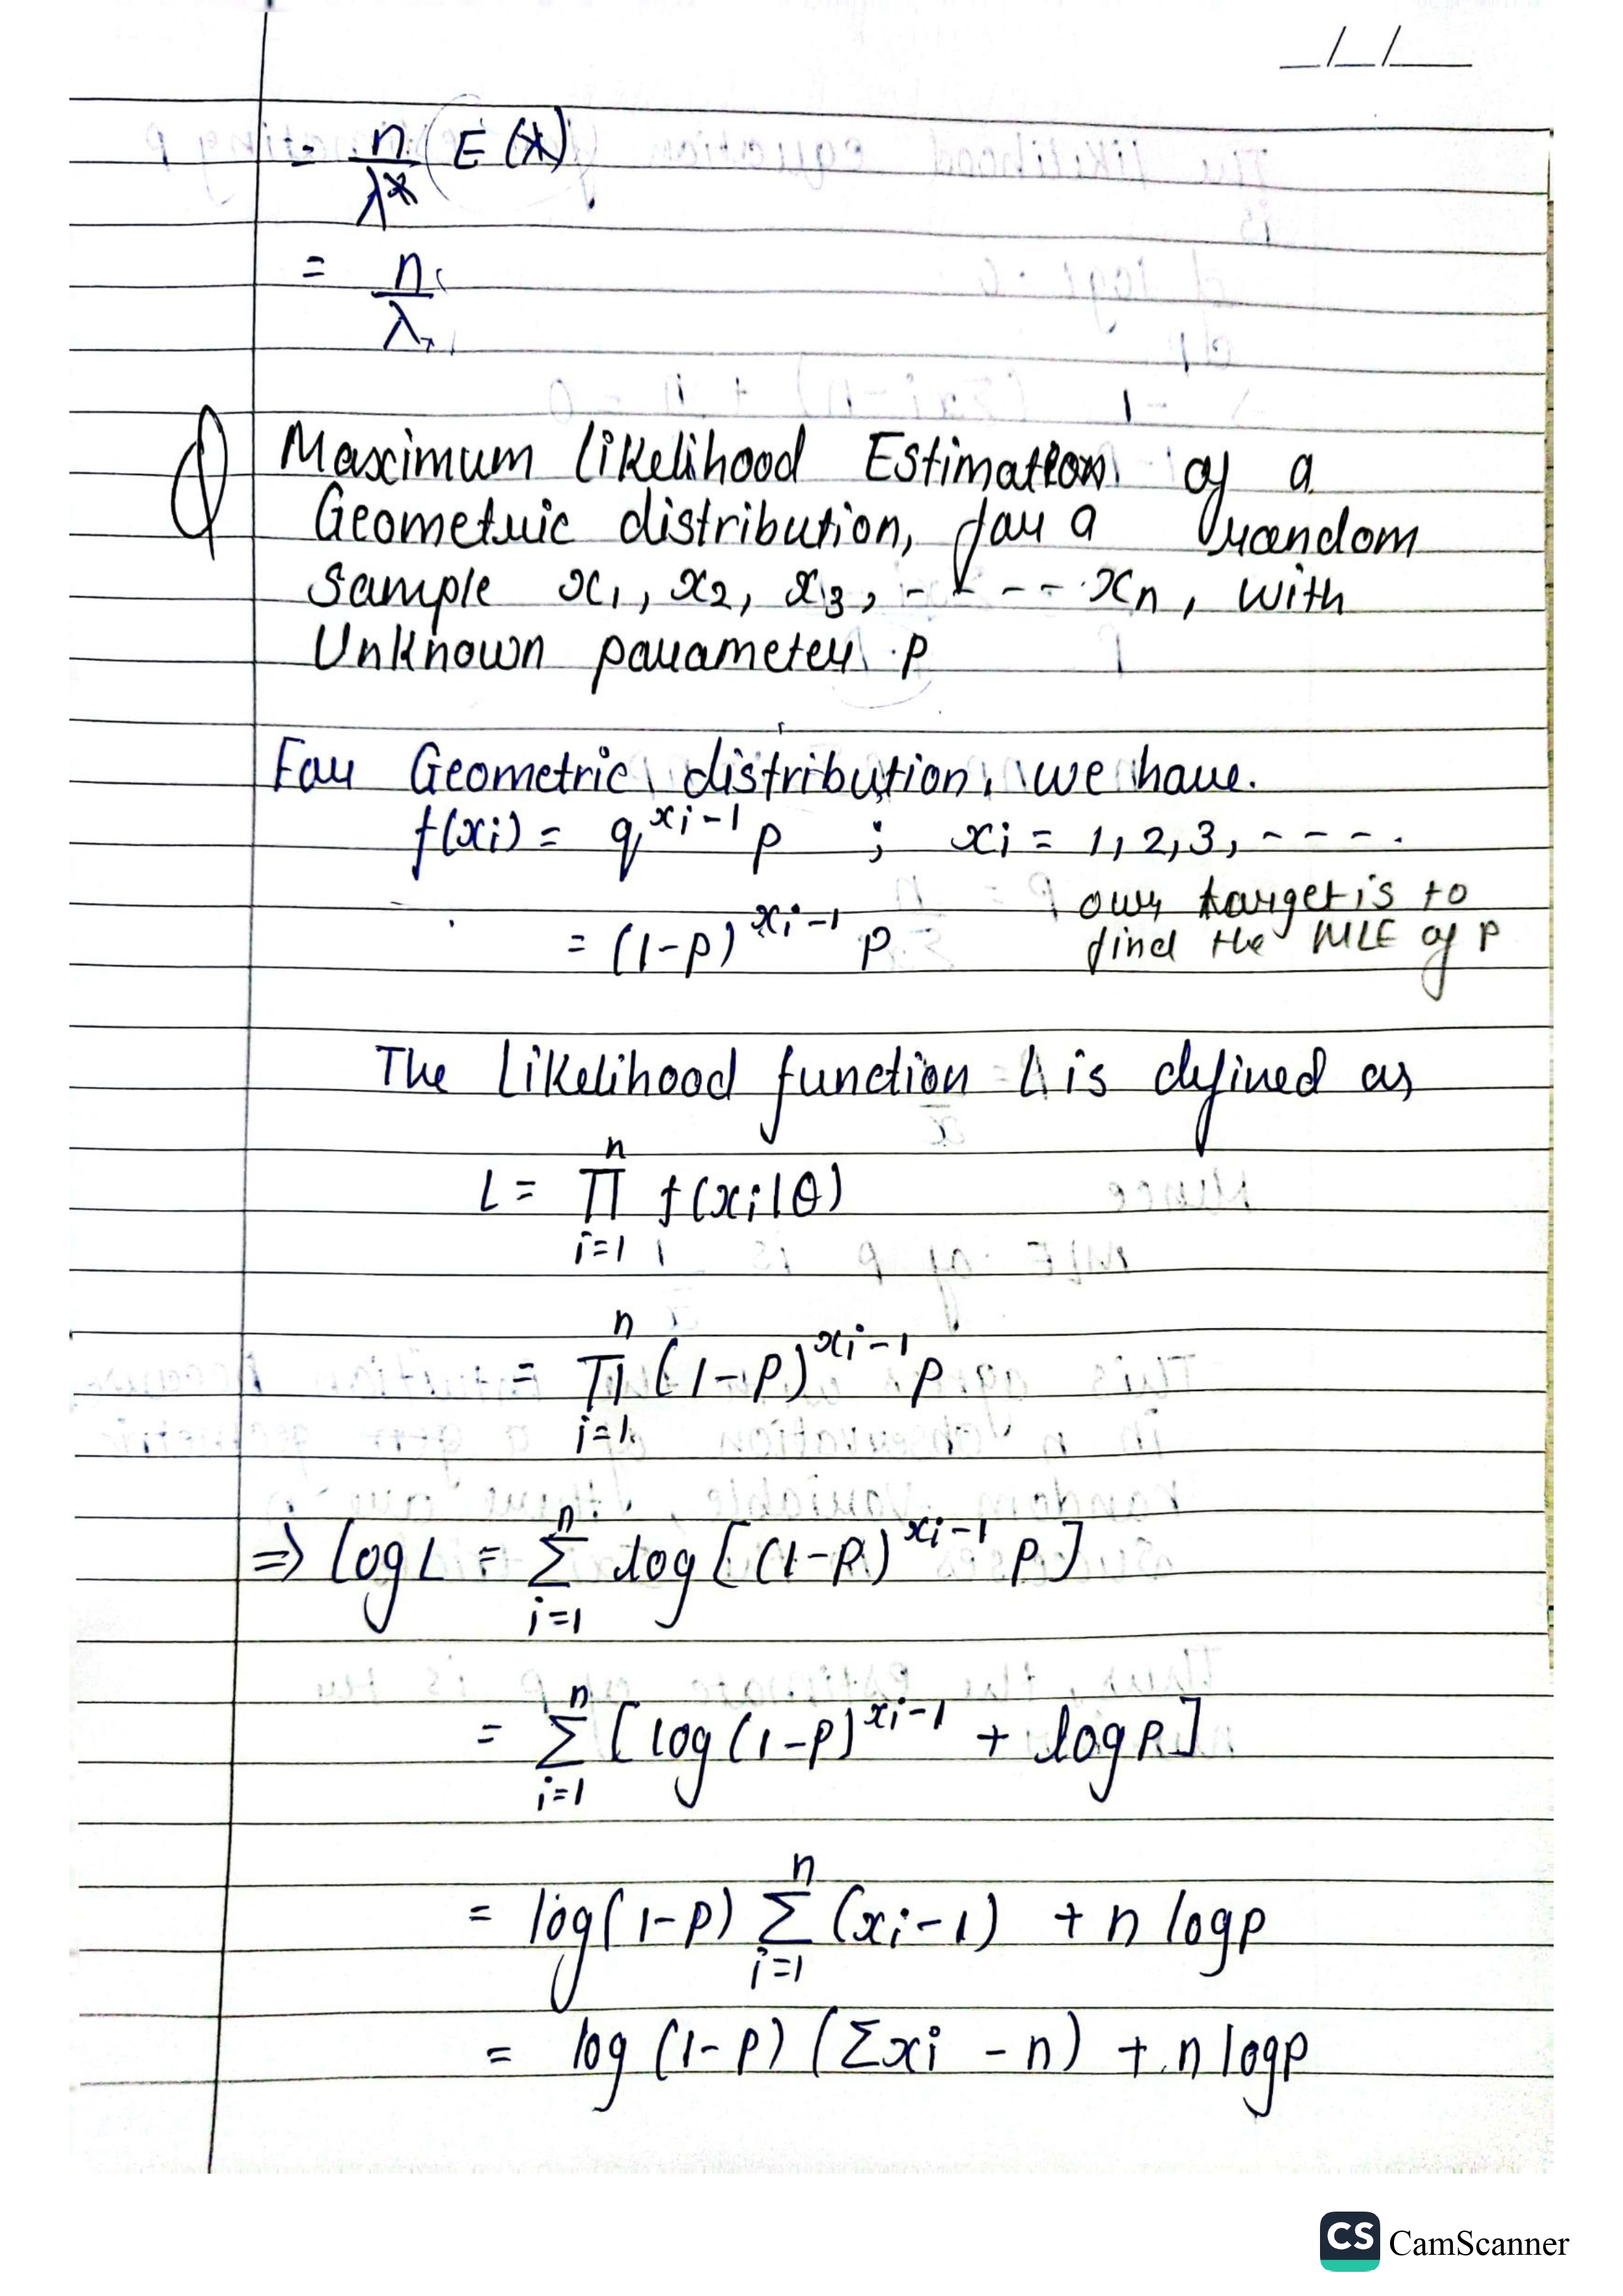 _/_/__
= n/λ² (E(x))
= n/λ
Q Maximum Likelihood Estimation of a
Geometric distribution, for a random
sample x₁, x₂, x₃, - - - - xₙ, with
Unknown parameter p
For Geometric distribution, we have.
f(xi) = q^(xi-1) p ; xi = 1, 2, 3, - - - -
= (1-p)^(xi-1) p
our target is to
find the MLE of p
The Likelihood function L is defined as
L = ∏_{i=1}^{n} f(xi|θ)
= ∏_{i=1}^{n} (1-p)^(xi-1) p
⇒ log L = Σ_{i=1}^{n} log[(1-p)^(xi-1) p]
= Σ_{i=1}^{n} [log(1-p)^(xi-1) + log p]
= log(1-p) Σ_{i=1}^{n} (xi-1) + n log p
= log(1-p) (Σxi - n) + n log p
CS CamScanner